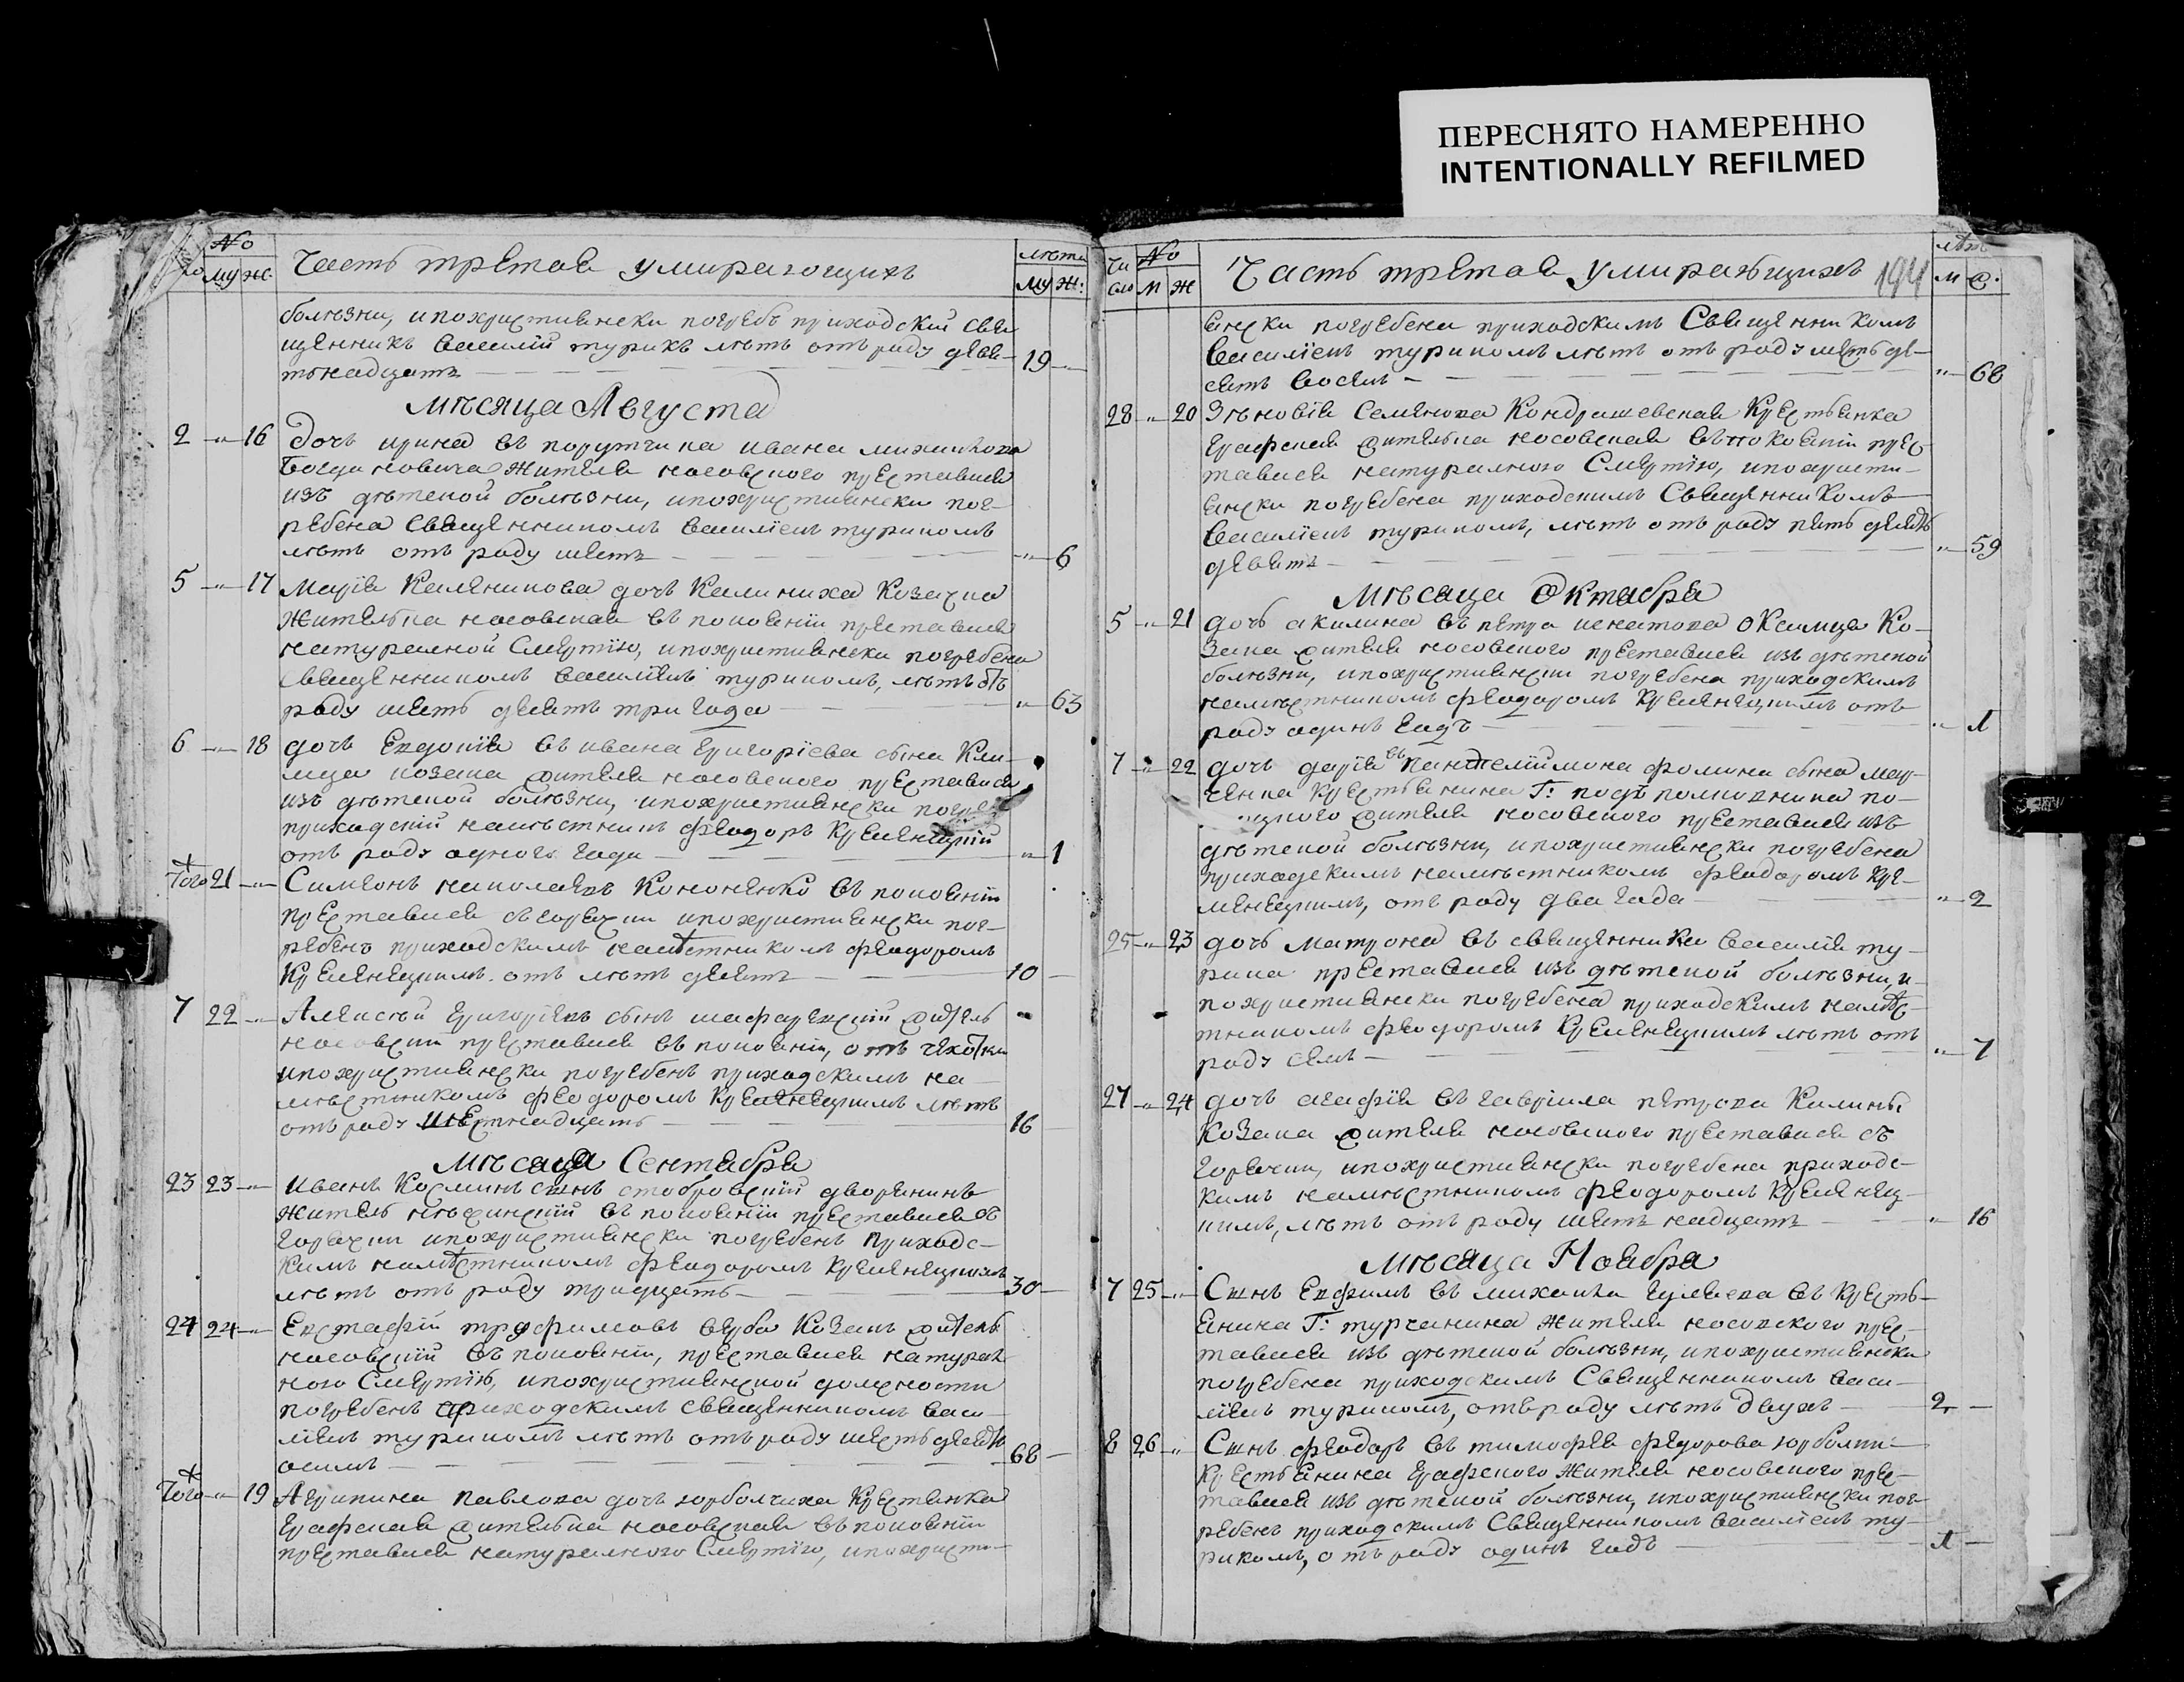 ПЕРЕСНЯТО НАМЕРЕННО
INTENTIONALLY REFILMED
№
му ж. Часть третая умирающихъ лѣта му ж:
болѣзни, ипохристиянски погребъ приходский свя
щенникъ василій турикъ лѣтъ отъ роду девя-
тьнадцать 19
мѣсяца Августа
2 16 дочь ирина въ порутчика ивана михайлова
жителя носовского преставися
изъ дѣтской болѣзни, ипохристиянски пог-
ребена священникомъ василіемъ турикомъ
лѣтъ отъ роду шесть 6
5 17 Марія дочь Калиниха Козачка
жителька носовская въ покояніи преставися
натуралной смертію, ипохристиянски погребена
священникомъ василіемъ турикомъ, лѣтъ отъ
роду шесть десятъ три года 63
6 18 дочь Евдокія въ ивана григоріева сына Кли-
мца козака жителя носовского преставися
изъ дѣтской болѣзни, ипохристиянски
приходскій намѣстникъ феодоръ Кременецкій
отъ роду одного года 1
Того 21 Симеонъ Кононенко въ покояніи
преставися съ горячки ипохристиянски пог-
ребенъ приходскимъ намѣстникомъ феодоромъ
Кременецкимъ отъ лѣтъ десятъ 10
7 22 Алексѣй григоріевъ сынъ житель
носовскій преставися въ покояніи, отъ чахотки
ипохристиянски погребенъ приходскимъ на-
мѣстникомъ феодоромъ Кременецкимъ лѣтъ
отъ роду шестнадцать 16
мѣсяца Сентября
23 23 иванъ Косминъ сынъ стобровскій дворянинъ
житель нѣжинскій въ покояніи преставися съ
горячки ипохристиянски погребенъ приходс-
кимъ намѣстникомъ феодоромъ Кременецкимъ
лѣтъ отъ роду тридцать 30
24 24 Евстафій трофимовъ верба Козакъ житель
носовскій въ покояніи, преставися натурал
ного смертію, ипохристиянской должности
погребенъ приходскимъ священникомъ васи-
ліемъ турикомъ лѣтъ отъ роду шесть десятъ
осимъ 68
Того 19 Агрипина павлова дочь юрболчиха Крестянка
графская жителька носовская въ покояніи
преставися натуралного смертію, ипохристи-
Число № м ж Часть третая умирающихъ 194 лѣта м ж.
янски погребена приходскимъ священникомъ
василіемъ турикомъ лѣтъ отъ роду шесть де-
сятъ восемъ 68
28 20 Зѣновія Семенова Кондрашевская Крестьянка
графская жителька носовская въ покояніи прес-
тавися натуралного смертію, ипохристи-
янски погребена приходскимъ священникомъ
василіемъ турикомъ, лѣтъ отъ роду пять десятъ
девять 59
мѣсяца Октября
5 21 дочь акилина въ петра игнатова Ко-
зака жителя носовского преставися изъ дѣтской
болѣзни, ипохристиянски погребена приходскимъ
намѣстникомъ феодоромъ Кременецкимъ отъ
роду одинъ годъ 1
7 22 дочь дарія въ пантелиймона фомина сына мар-
ченка Крестьянина Г: подъполковника по-
жителя носовского преставися изъ
дѣтской болѣзни, ипохристиянски погребена
приходскимъ намѣстникомъ феодоромъ Кре-
менецкимъ, отъ роду два года 2
25 23 дочь Матрона въ священника василія ту-
рика преставися изъ дѣтской болѣзни, и-
похристиянски погребена приходскимъ намѣс-
тникомъ феодоромъ Кременецкимъ лѣтъ отъ
роду семъ 7
27 24 дочь агафія въ гавріила петрова Калины
Козака жителя носовского преставися съ
горячки, ипохристиянски погребена приходс-
кимъ намѣстникомъ феодоромъ Кременец-
кимъ, лѣтъ отъ роду шестьнадцать 16
мѣсяца Ноября
7 25 Сынъ Евфимъ въ михаила гуляева въ Кресть-
янина Г: турчанина жителя носовского прес-
тавися изъ дѣтской болѣзни, ипохристиянски
погребена приходскимъ священникомъ васи-
ліемъ турикомъ, отъ роду лѣтъ двухъ 2
8 26 Сынъ феодоръ въ тимофея федорова
Крестьянина графского жителя носовского прес-
тавися изъ дѣтской болѣзни, ипохристиянски пог-
ребенъ приходскимъ священникомъ василіемъ ту-
рикомъ, отъ роду одинъ годъ 1